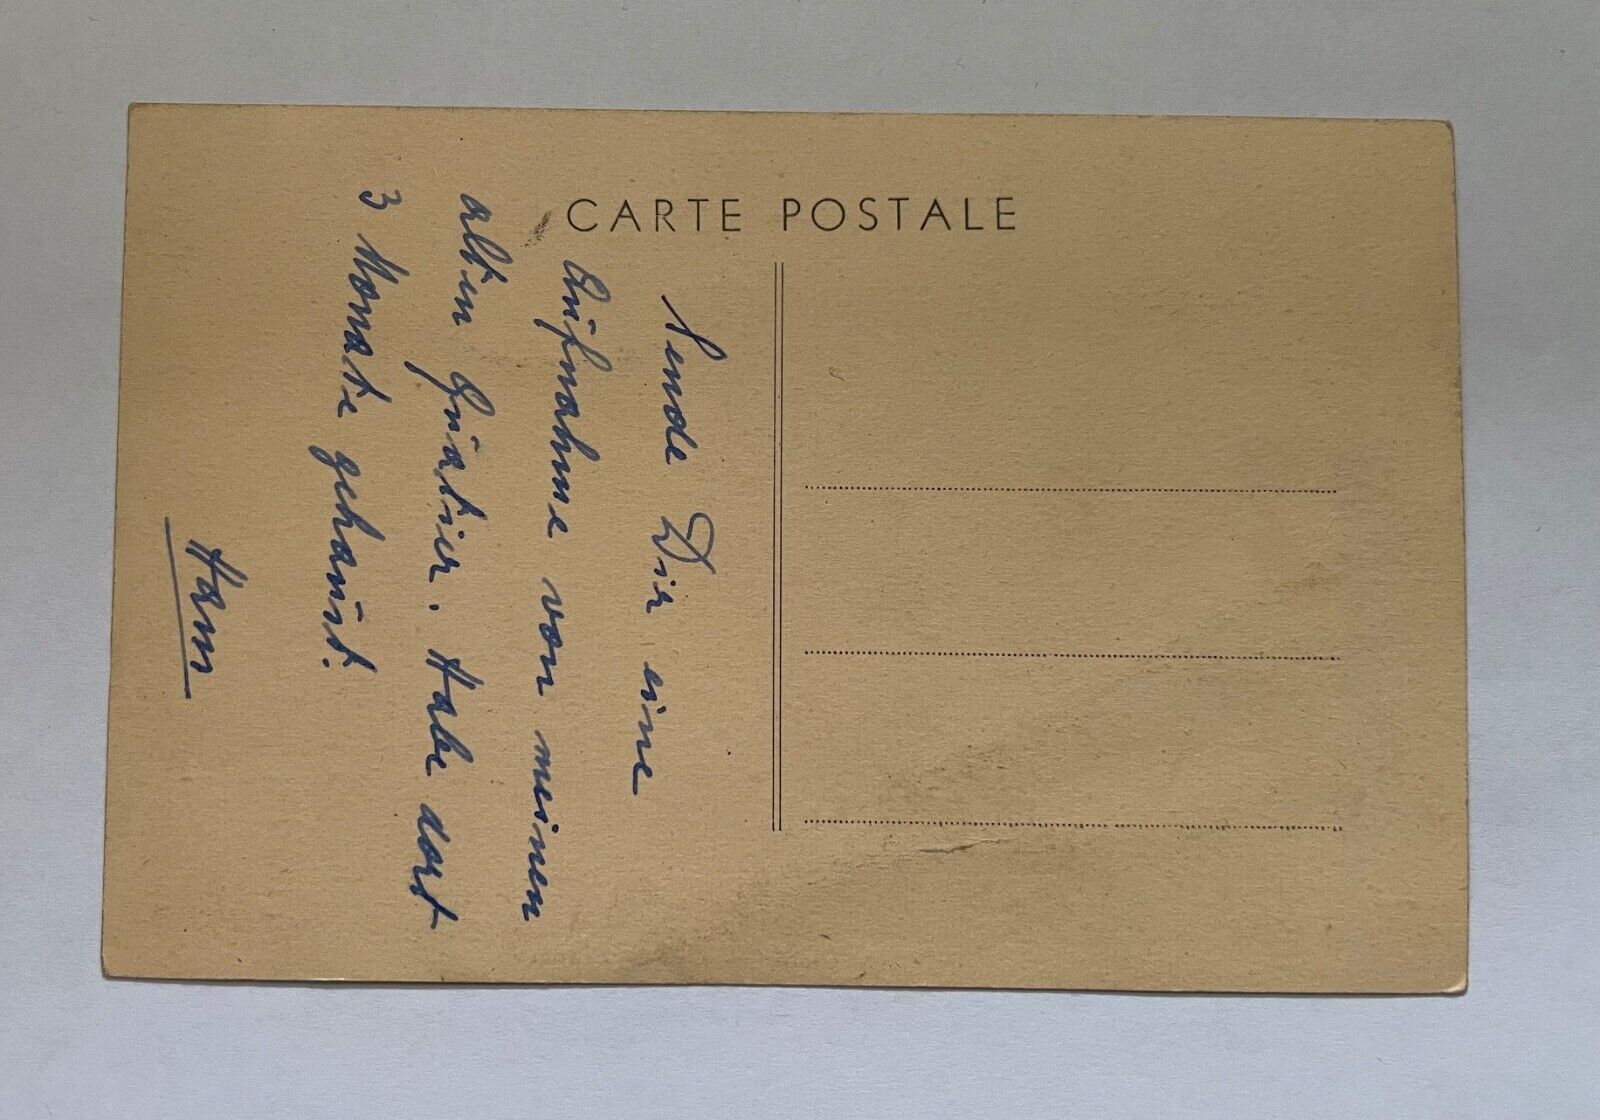 CARTE POSTALE
Sende Dir eine
Aufnahme von meinen
alten Quatier. Habe dort
3 Monate gehaust.